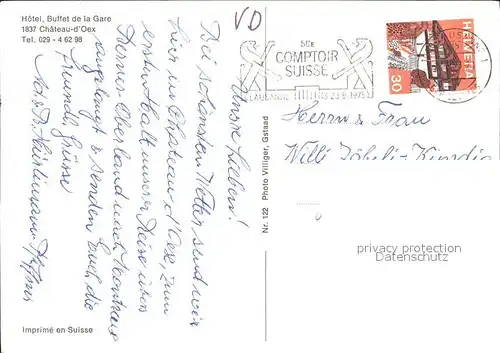 Hôtel, Buffet de la Gare
1837 Château-d'Oex
Tel. 029 - 4 62 98
VD
50E
COMPTOIR
SUISSE
LAUSANNE 13-23.9.1975
HELVETIA
30
Unsre Lieben!
Bei schönstem Wetter sind wir
hier in Château-d'Oex, zum
ersten Halt unsrer Reise übers
Berner Oberland nach Montreux
angelangt & senden Euch die
freundl. Grüsse
Herrn & Frau
Willi
Nr. 122 Photo Villiger, Gstaad
privacy protection
Datenschutz
Imprimé en Suisse